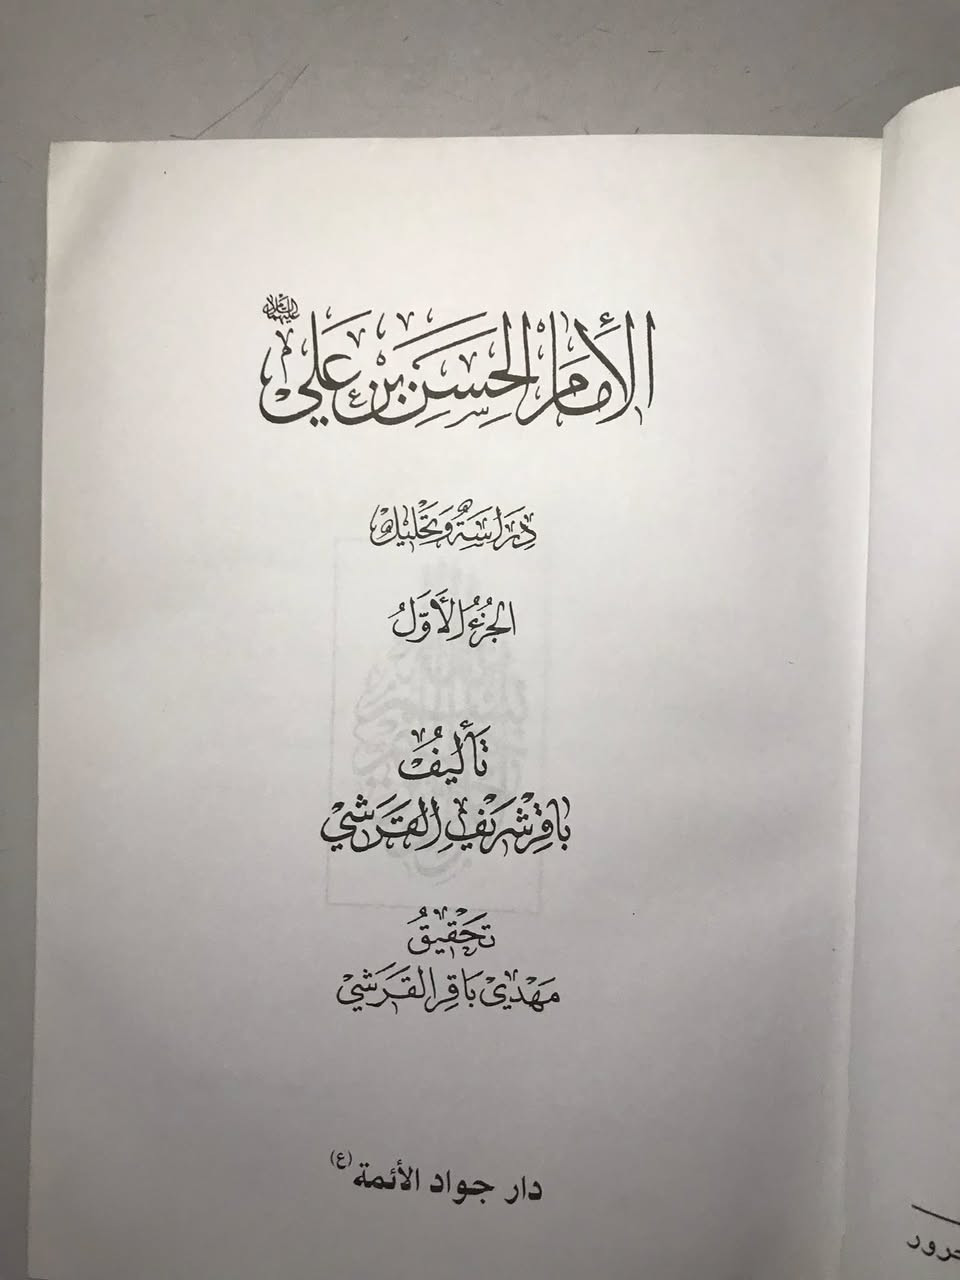 الإمَامُ الحَسَنُ بْنُ عَلِيّ عليهما السلام
دِرَاسَةٌ وَتَحْلِيل
الجُزْءُ الأَوَّلُ
تَأليفُ
بَاقِر شَرِيف القَرَشِيّ
تَحْقِيقُ
مَهْدِي بَاقِر القَرَشِيّ
دار جواد الأئمة (ع)